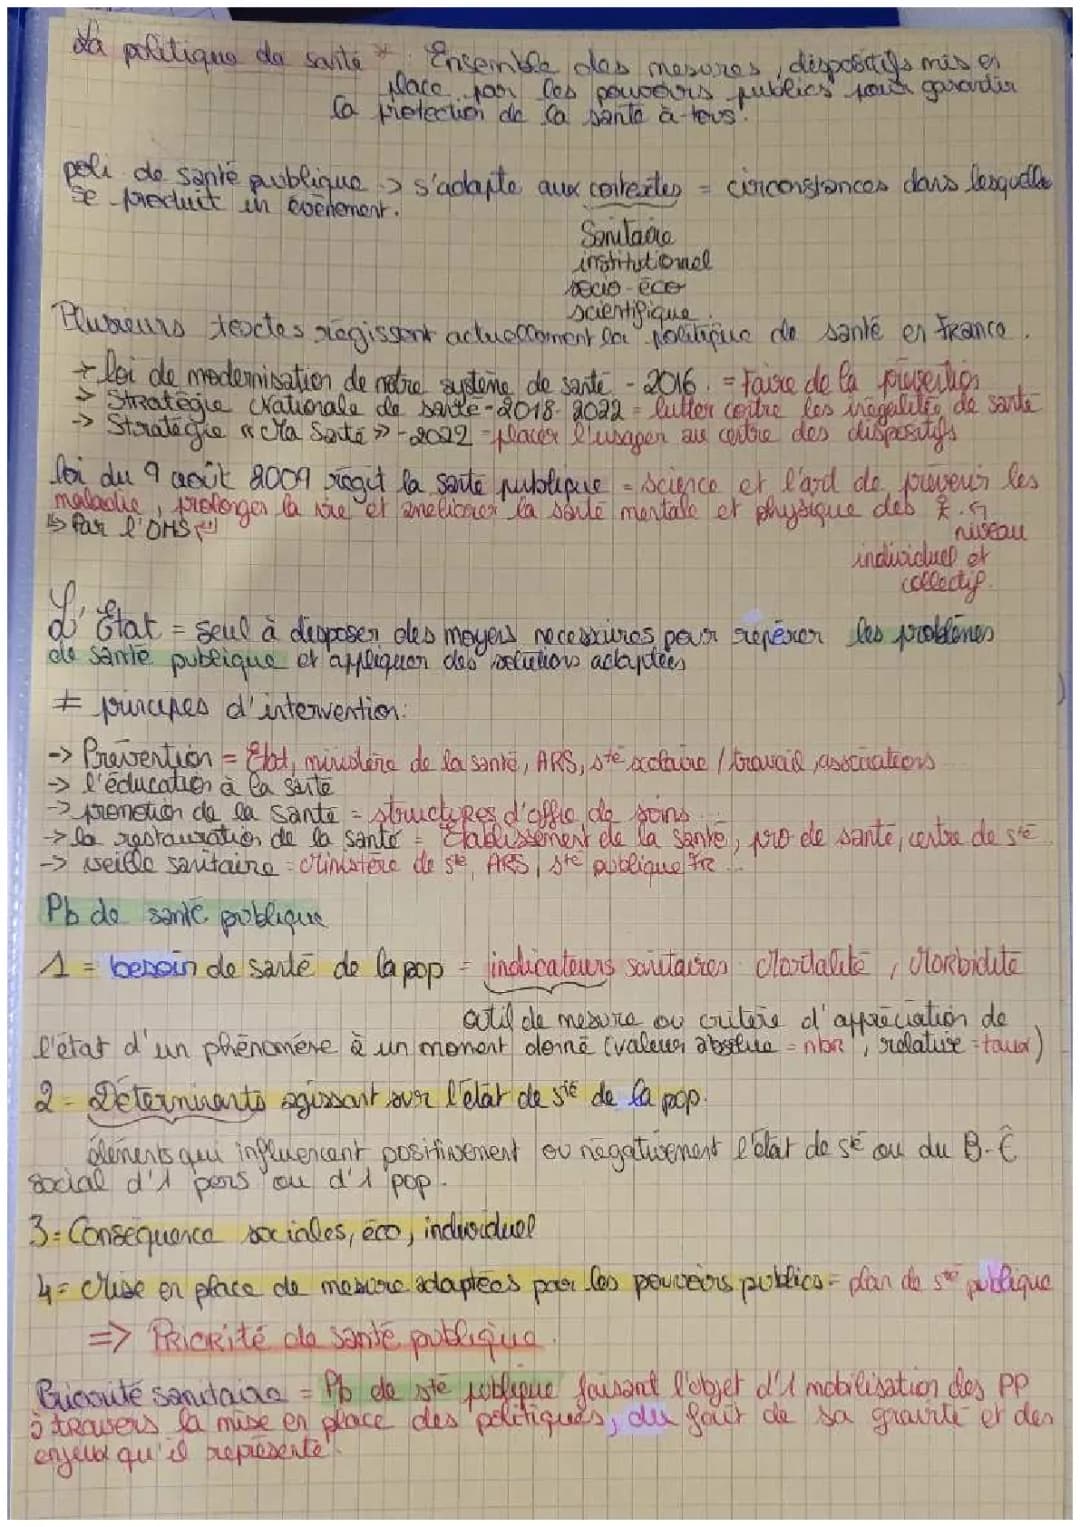 La politique de santé * : Ensemble des mesures, dispositifs mis en
place par les pouvoirs publics pour garantir
la protection de la santé à tous.
poli de santé publique -> s'adapte aux contextes = circonstances dans lesquelle
se produit un évènement.
Sanitaire
institutionnel
socio-éco
scientifique.
Plusieurs textes régissent actuellement la politique de santé en France.
-> loi de modernisation de notre système de santé - 2016. = Faire de la prévention
-> Stratégie Nationale de santé - 2018-2022 = lutter contre les inégalités de santé
-> Stratégie « Ma Santé » - 2022 - placer l'usager au centre des dispositifs
loi du 9 août 2009 régit la santé publique = science et l'art de prévenir les
maladie, prolonger la vie et améliorer la santé mentale et physique des
niveau
↳ Par l'OMS
individuel et
collectif.
L'État = seul à disposer des moyens necessaires pour repérer les problèmes
de santé publique et appliquer des solutions adaptées
≠ principes d'intervention:
-> Prévention = État, ministère de la santé, ARS, sté scolaire / travail, associations
-> l'éducation à la santé
-> promotion de la santé = structures d'offre de soins
-> la restauration de la santé = Établissement de la santé, pro de santé, centre de sté
-> veille sanitaire = Ministère de sté, ARS, sté publique Fr...
Pb de santé publique
1 = besoin de santé de la pop = indicateurs sanitaires Mortalité, Morbidité
outil de mesure ou critère d'appréciation de
l'état d'un phénomène à un moment donné (valeur absolue = nbr, relative = taux)
2 - Déterminants agissant sur l'état de sté de la pop.
éléments qui influencent positivement ou négativement l'état de sté ou du B-Ê
social d'1 pers ou d'1 pop.
3 = Conséquence sociales, éco, individuel
4 = Mise en place de mesure adaptées par les pouvoirs publics = plan de sté publique
=> Priorité de santé publique.
Priorité sanitaire = Pb de sté publique faisant l'objet d'1 mobilisation des PP
à travers la mise en place des politiques, du fait de sa gravité et des
enjeux qu'il représente.